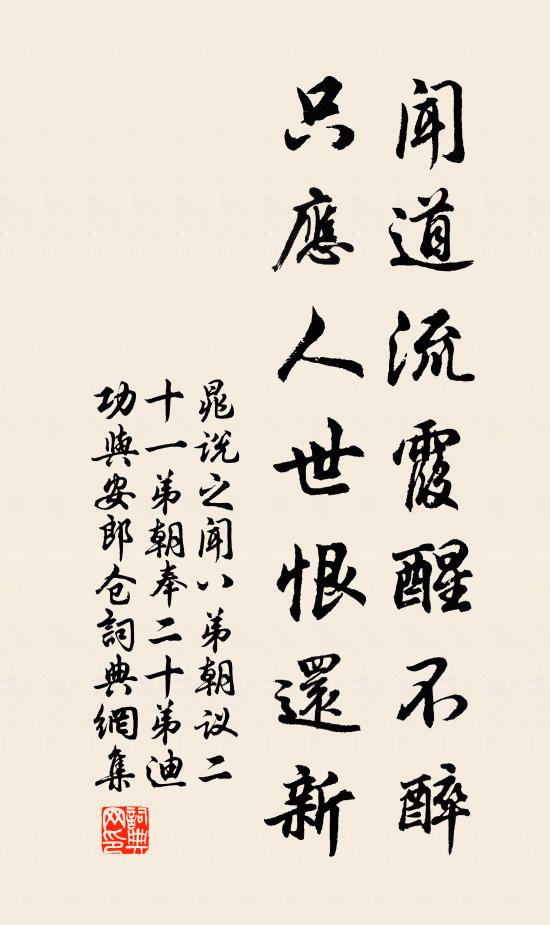 聞道流霞醒不醉
只應人世恨還新
晁说之闻八弟朝议二
十一弟朝奉二十弟迪
功與安郎仓詞典網集
詞典
网印